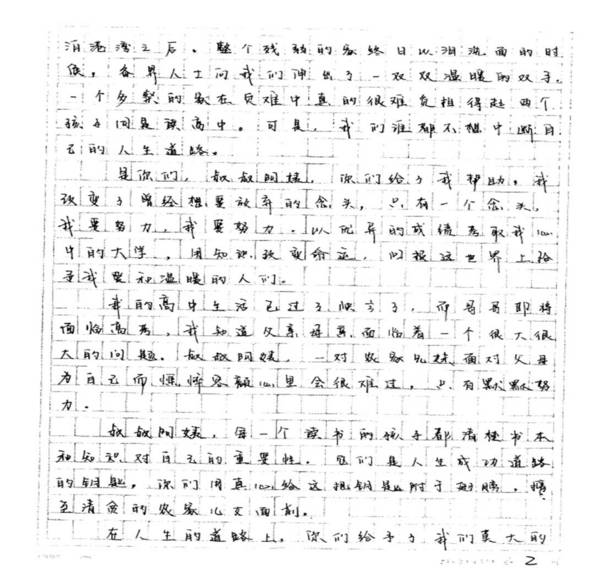 之后。整个残弱的家终日以泪洗面的时
候，各界人士向我们伸出了一双双温暖的双手。
一个多梨的家在贫难中真的很难负担得起两个
孩子同是读高中。可是，我们谁都不想中断自
己的人生道路。
是你们，叔叔阿姨，你们给予我帮助。我
改变了曾经想要放弃的念头，只有一个念头，
我要努力，我要努力。以优异的成绩考取我心
中的大学，用知识改变命运，回报这世界上给
予我爱和温暖的人们。
我的高中生活已过了，而哥哥即将
面临高考，我知道父亲母亲面临着一个很大很
大的问题。叔叔阿姨，一对农家兄妹面对父母
为自己而憔悴容颜心里会很难过，只有默默努
力。
叔叔阿姨，每一个读书的孩子都清楚书本
和知识对自己的重要性，它们是人生成功道路
的钥匙。你们用真心给这把钥匙附于翅膀，
至清贫的农家儿女面前。
在人生的道路上，你们给予了我们莫大的
2